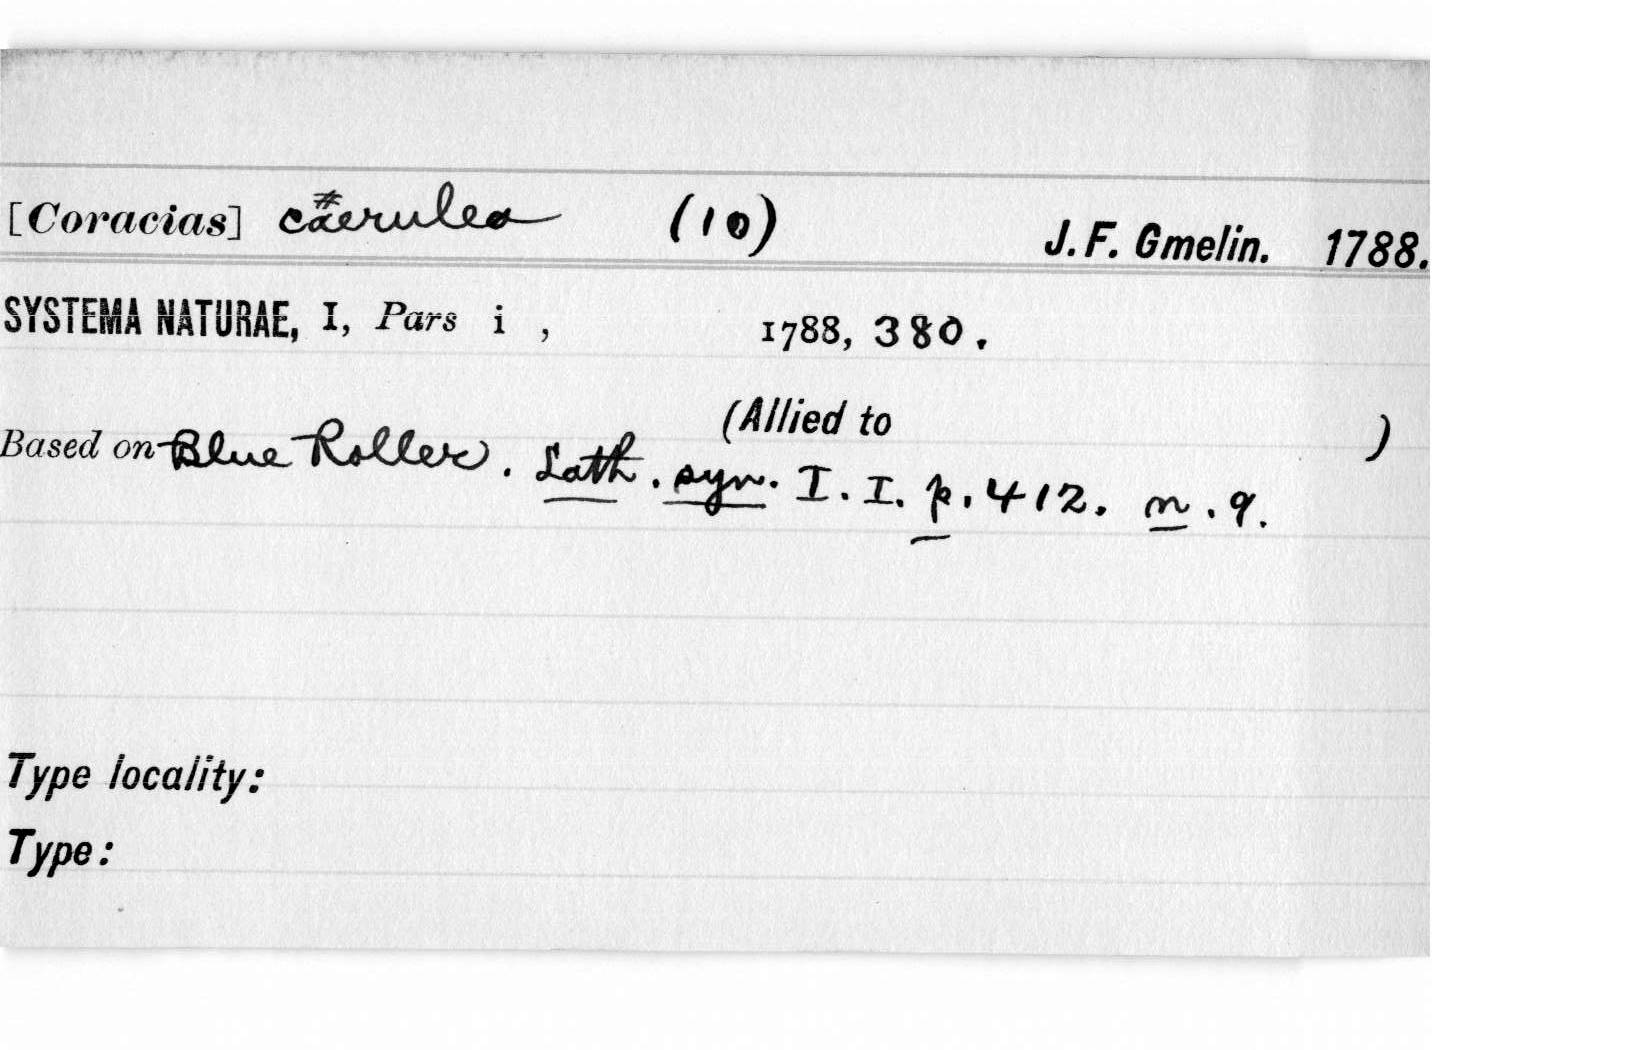 [Coracias] caerulea (10) J. F. Gmelin. 1788.
SYSTEMA NATURAE, I, Pars i , 1788, 380.
(Allied to )
Based on Blue Roller. Lath. syn. I. I. p. 412. n. 9.
Type locality:
Type: